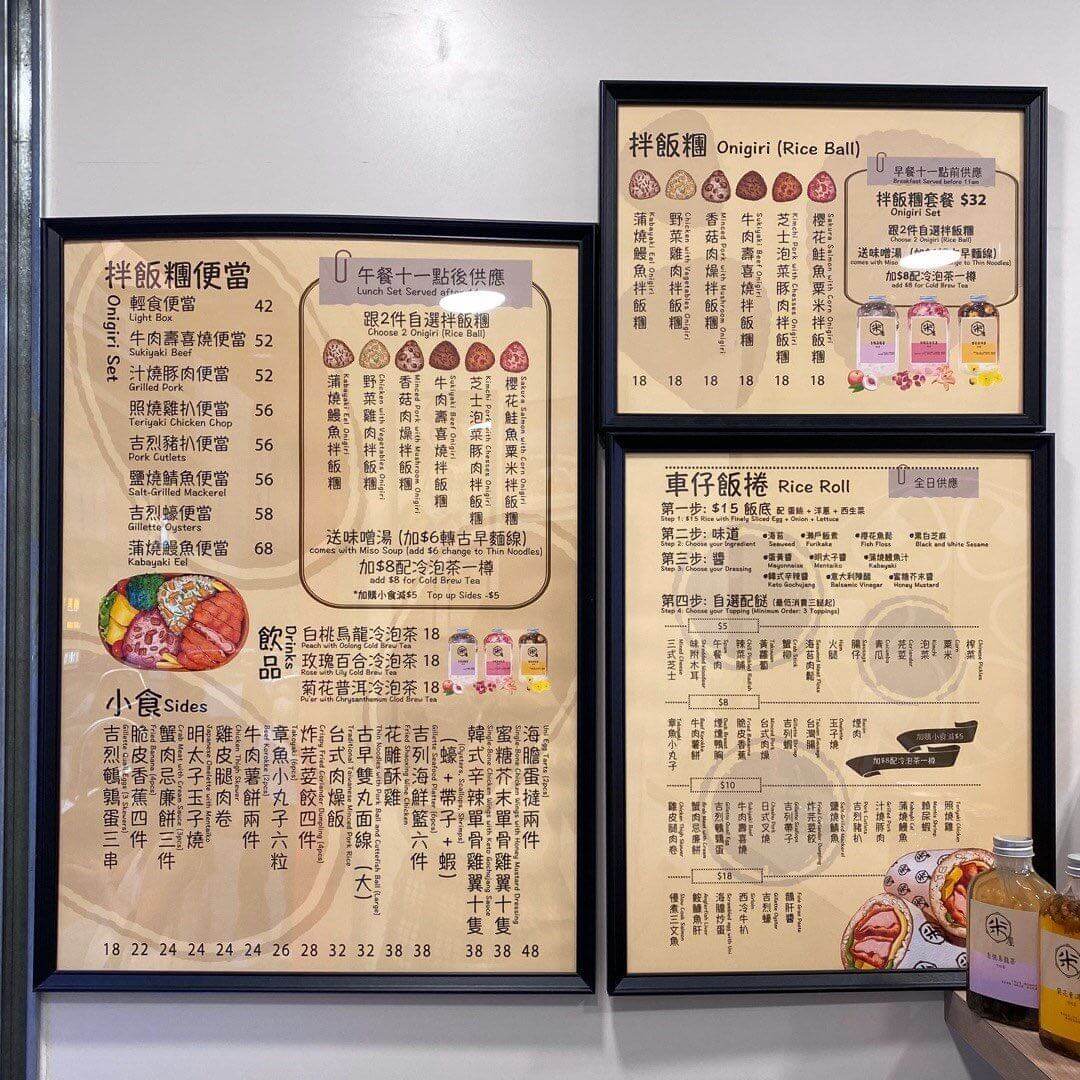 拌飯糰便當
Onigiri Set
輕食便當 42
Light Box
牛肉壽喜燒便當 52
Sukiyaki Beef
汁燒豚肉便當 52
Grilled Pork
照燒雞扒便當 56
Teriyaki Chicken Chop
吉烈豬扒便當 56
Pork Cutlets
鹽燒鯖魚便當 56
Salt-Grilled Mackerel
吉烈蠔便當 58
Gillette Oysters
蒲燒鰻魚便當 68
Kabayaki Eel
午餐十一點後供應
Lunch Set Served after
跟2件自選拌飯糰
Choose 2 Onigiri (Rice Ball)
蒲燒鰻魚拌飯糰
Kabayaki Eel Onigiri
野菜雞肉拌飯糰
Chicken with Vegetables Onigiri
香菇肉燥拌飯糰
Minced Pork with Mushroom Onigiri
牛肉壽喜燒拌飯糰
Sukiyaki Beef Onigiri
芝士泡菜豚肉拌飯糰
Kimchi Pork with Chesses Onigiri
櫻花鮭魚粟米拌飯糰
Sakura Salmon with Corn Onigiri
送味噌湯 (加$6轉古早麵線)
comes with Miso Soup (add $6 change to Thin Noodles)
加$8配冷泡茶一樽
add $8 for Cold Brew Tea
*加購小食減$5 Top up Sides -$5
飲品
Drinks
白桃烏龍冷泡茶 18
Peach with Oolong Cold Brew Tea
玫瑰百合冷泡茶 18
Rose with Lily Cold Brew Tea
菊花普洱冷泡茶 18
Pu'er with Chrysanthemum Clod Brew Tea
小食 Sides
吉烈鵪鶉蛋三串
18
脆皮香蕉四件
Fried Banana (4pcs)
22
蟹肉忌廉餅三件
Crab Meat with Cream Sauce (3pcs)
24
明太子玉子燒
Japanese Omelette with Mentaiko
24
雞皮腿肉卷
Chicken Thigh Skewer
24
牛肉薯餅兩件
Beef Korokke (2pcs)
24
章魚小丸子六粒
Takoyaki (6pcs)
26
炸芫荽餃四件
Crispy Fried Coriander Dumpling (4pcs)
28
台式肉燥飯
Traditional Taiwanese Minced Pork Rice
32
古早雙丸面線 (大)
Thin Noodles with Pork Ball and Cuttlefish Ball (Large)
32
花雕酥雞
38
吉列海鮮籃六件
(蠔+帶子+蝦)
Gillette Seafood Platter (6pcs)
(Oysters, Scallops, Shrimps)
38
韓式辛辣單骨雞翼十隻
Single-Bone Chicken Wings with Keto Gochujang Sauce
38
蜜糖芥末單骨雞翼十隻
Single-Bone Chicken Wings with Honey Mustard Dressing
38
海膽蛋撻兩件
Uni Egg Tarts (2pcs)
48
拌飯糰 Onigiri (Rice Ball)
蒲燒鰻魚拌飯糰
Kabayaki Eel Onigiri
18
野菜雞肉拌飯糰
Chicken with Vegetables Onigiri
18
香菇肉燥拌飯糰
Minced Pork with Mushroom Onigiri
18
牛肉壽喜燒拌飯糰
Sukiyaki Beef Onigiri
18
芝士泡菜豚肉拌飯糰
Kimchi Pork with Chesses Onigiri
18
櫻花鮭魚粟米拌飯糰
Sakura Salmon with Corn Onigiri
18
早餐十一點前供應
Breakfast Served before 11am
拌飯糰套餐 $32
Onigiri Set
跟2件自選拌飯糰
Choose 2 Onigiri (Rice Ball)
送味噌湯
早麵線)
comes with Miso
change to Thin Noodles)
加$8配冷泡茶一樽
add $8 for Cold Brew Tea
車仔飯捲 Rice Roll
全日供應
第一步: $15 飯底 配 蛋絲 + 洋蔥 + 西生菜
Step 1: $15 Rice with Finely Sliced Egg + Onion + Lettuce
第二步: 味道 •海苔 •瀨戶飯煮 •櫻花魚鬆 •黑白芝麻
Step 2: Choose your Ingredient Seaweed Furikake Fish Floss Black and White Sesame
第三步: 醬 •蛋黃醬 •明太子醬 •蒲燒鰻魚汁
Step 3: Choose your Dressing Mayonnaise Mentaiko Kabayaki
•韓式辛辣醬 •意大利陳醋 •蜜糖芥末醬
Keto Gochujang Balsamic Vinegar Honey Mustard
第四步: 自選配餸 (最低消費三餸起)
Step 4: Choose your Topping (Minimum Order: 3 Toppings)
$5
三式芝士
Mixed Cheese
味附木耳
午餐肉
Spam
辣菜脯
黃蘿蔔
蟹柳
Crab Stick
海苔肉鬆
Seaweed Meat Floss
火腿
Ham
腸仔
Sausage
青瓜
Cucumber
芫荽
Coriander
泡菜
Kimchi
粟米
Corn
榨菜
Chinese Pickles
$8
章魚小丸子
Takoyaki
牛肉薯餅
Beef Korokke
煙燻鴨胸
脆皮香蕉
台式肉燥
吉列蝦
台灣腸
玉子燒
Omelette
煙肉
Bacon
加購小食減$5
加$8配冷泡茶一樽
$10
雞皮腿肉卷
Chicken Thigh Skewer
蟹肉忌廉餅
Crab Meat with Cream
吉烈鵪鶉蛋
牛肉壽喜燒
Sukiyaki Beef
日式叉燒
吉列帶子
炸芫荽餃
Fried Coriander Dumpling
鹽燒鯖魚
Salt-Grilled Mackerel
吉烈豬扒
Pork Cutlets
汁燒豚肉
Grilled Pork
蒲燒鰻魚
Kabayaki Eel
照燒雞
Teriyaki Chicken
$18
慢煮三文魚
Slow Cook Salmon
鮟鱇魚肝
Anglerfish Liver
海膽炒蛋
Scrambled Egg with Uni
西冷牛扒
Sirloin
吉烈蠔
Gillette Oyster
鵝肝醬
Foie Gras Paste
米屋
米